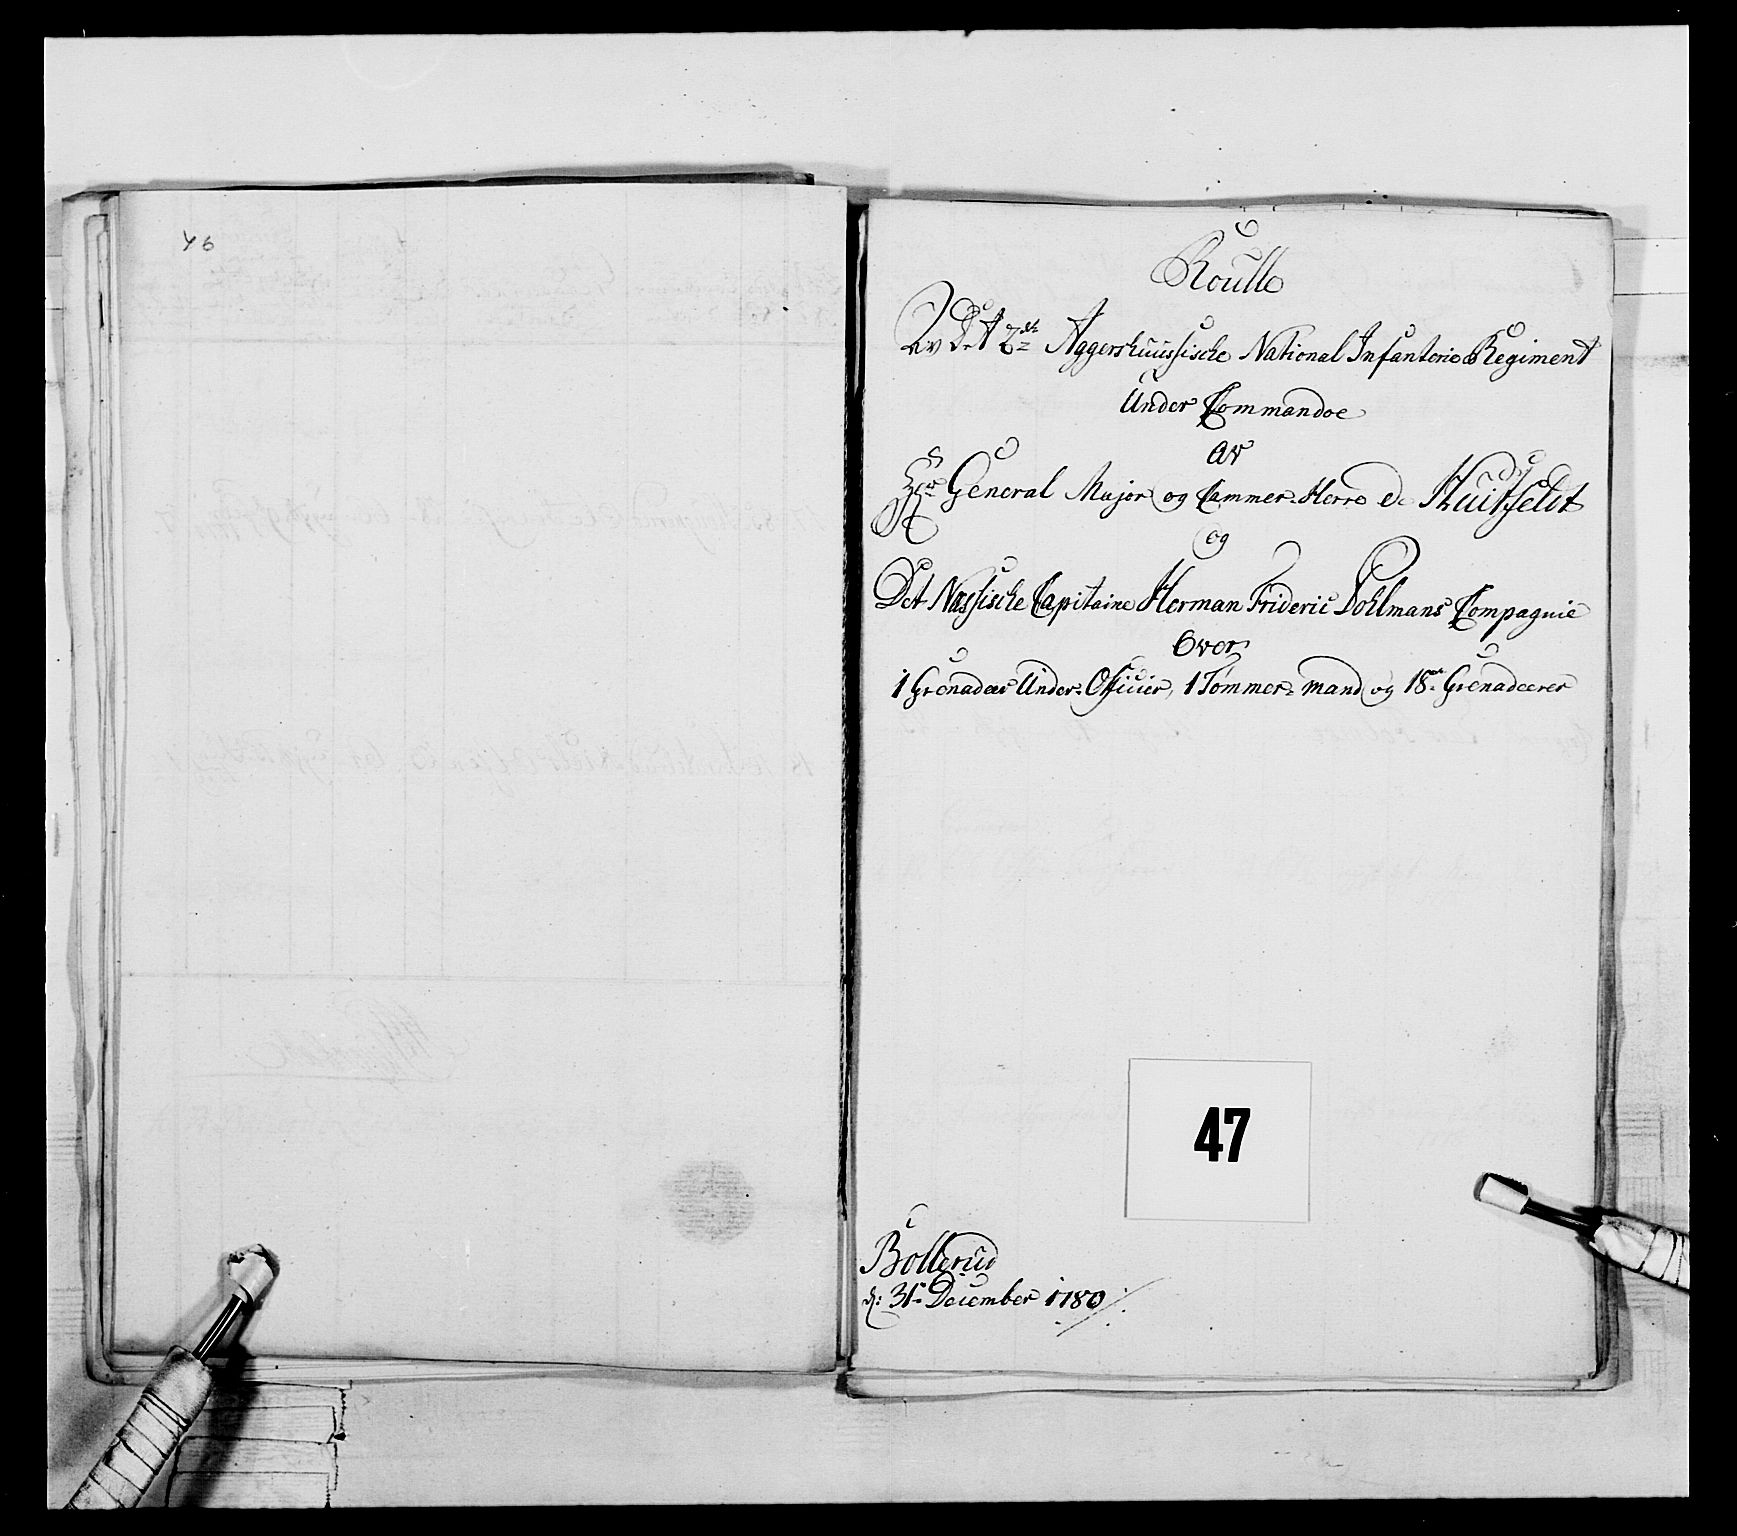 46
Roulle
Av Det 2de Aggershuusische National Infanterie Regiment
Under Commandoe
av
Hr General Major og Cammer-Herre de Huitfeldt
og
Det Næssische Capitaine Herman Frideric Pohlmans Compagnie
Over
1 Grenadeer Under-Officier, 1 Tømmer-mand og 18ten Grenadeerer
47
Bollerud
d: 31te December 1780